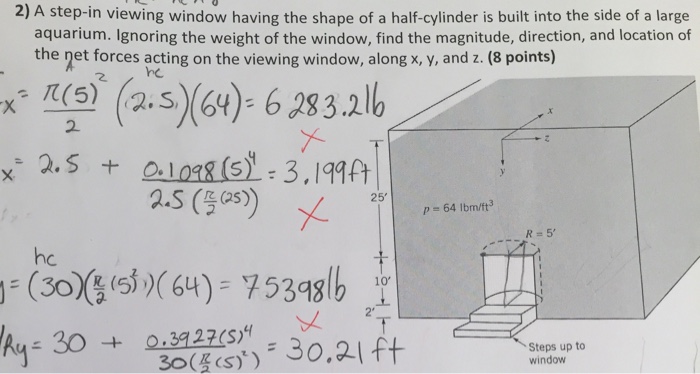 2) A step-in viewing window having the shape of a half-cylinder is built into the side of a large
aquarium. Ignoring the weight of the window, find the magnitude, direction, and location of
the net forces acting on the viewing window, along x, y, and z. (8 points)
hc
x = π(5)² / 2 (2.5)(64) = 6 283.2lb
x = 2.5 + 0.1098(5)⁴ / 2.5(π/2(25)) = 3.199ft
hc
= (30)(π/2(5)²)(64) = 75398lb
Ry = 30 + 0.3927(5)⁴ / 30(π/2(5)²) = 30.21ft
x
z
y
25'
ρ = 64 lbm/ft³
R = 5'
10'
2'
Steps up to
window